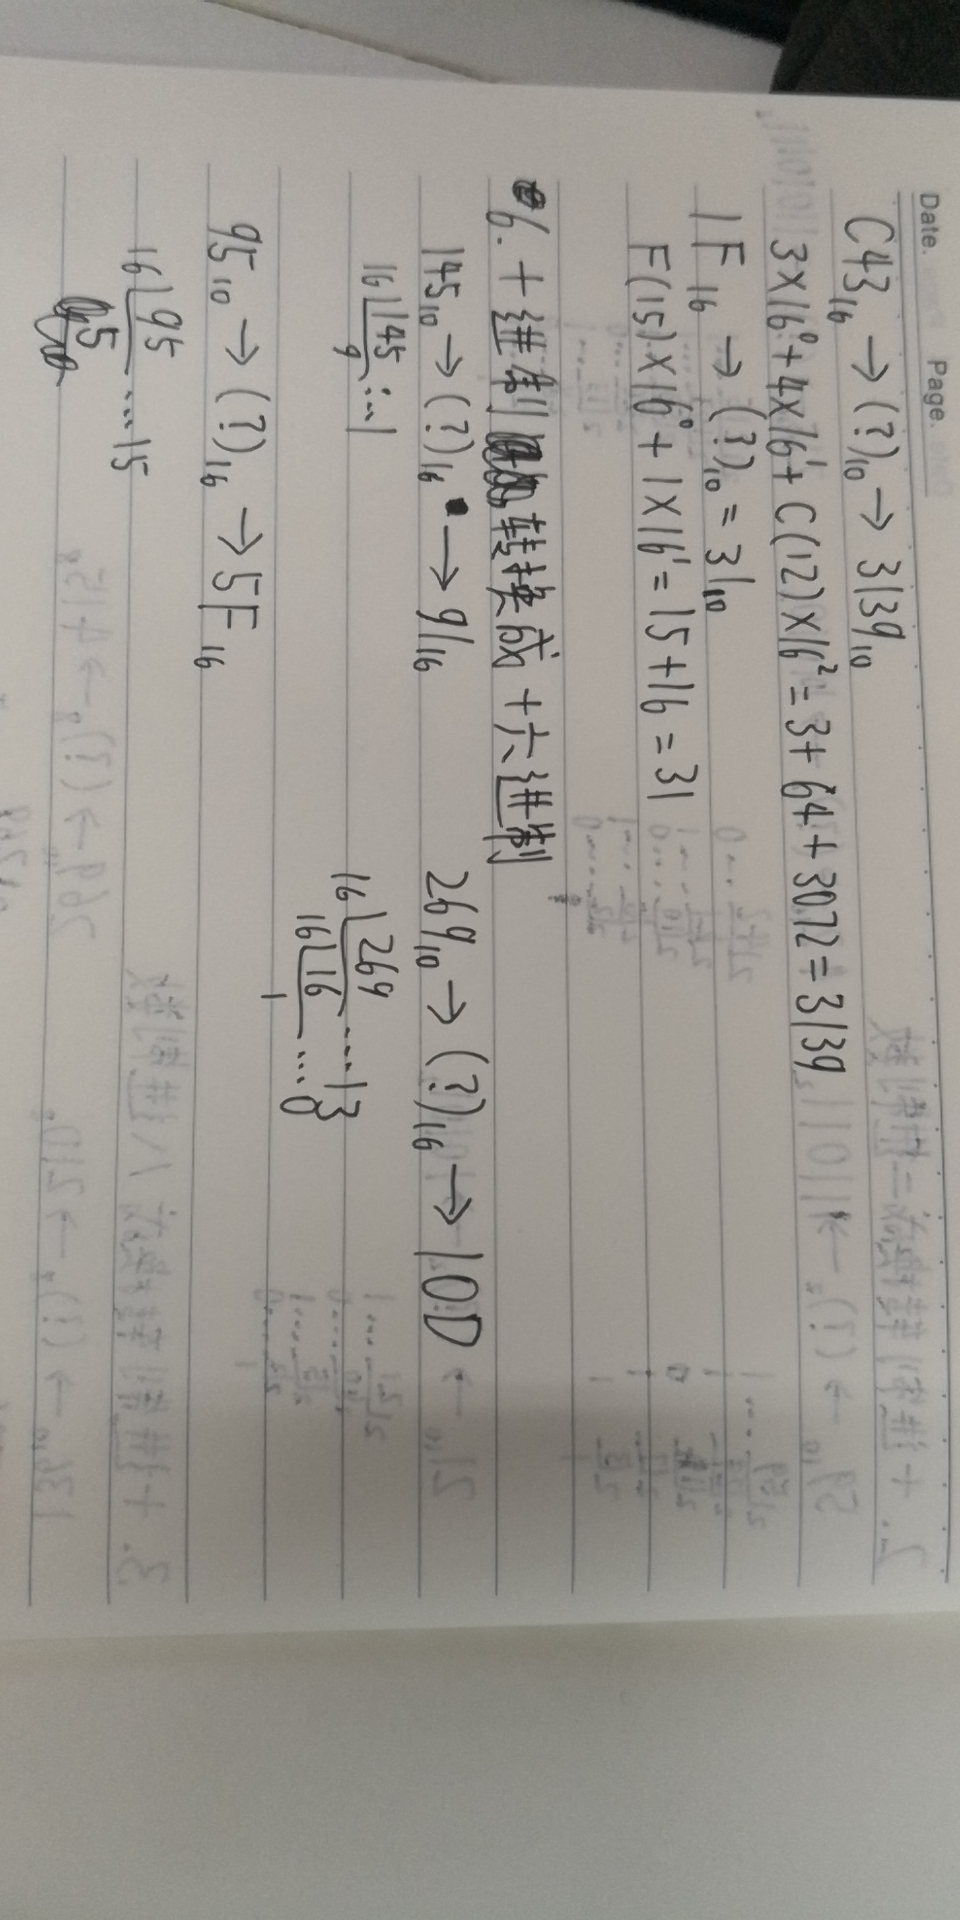 Date. Page.
C43₁₆ → (?)₁₀ → 3139₁₀
3×16⁰+4×16¹+C(12)×16²=3+64+3072=3139
1F₁₆ → (?)₁₀ = 31₁₀
F(15)×16⁰+1×16¹=15+16=31
6. 十进制转换成十六进制
145₁₀ → (?)₁₆ → 91₁₆ 269₁₀ → (?)₁₆ → 10D
16 145 ...1 16 269 ....13
9 16 16 ...0
1
95₁₀ → (?)₁₆ → 5F₁₆
16 95 ...15
5